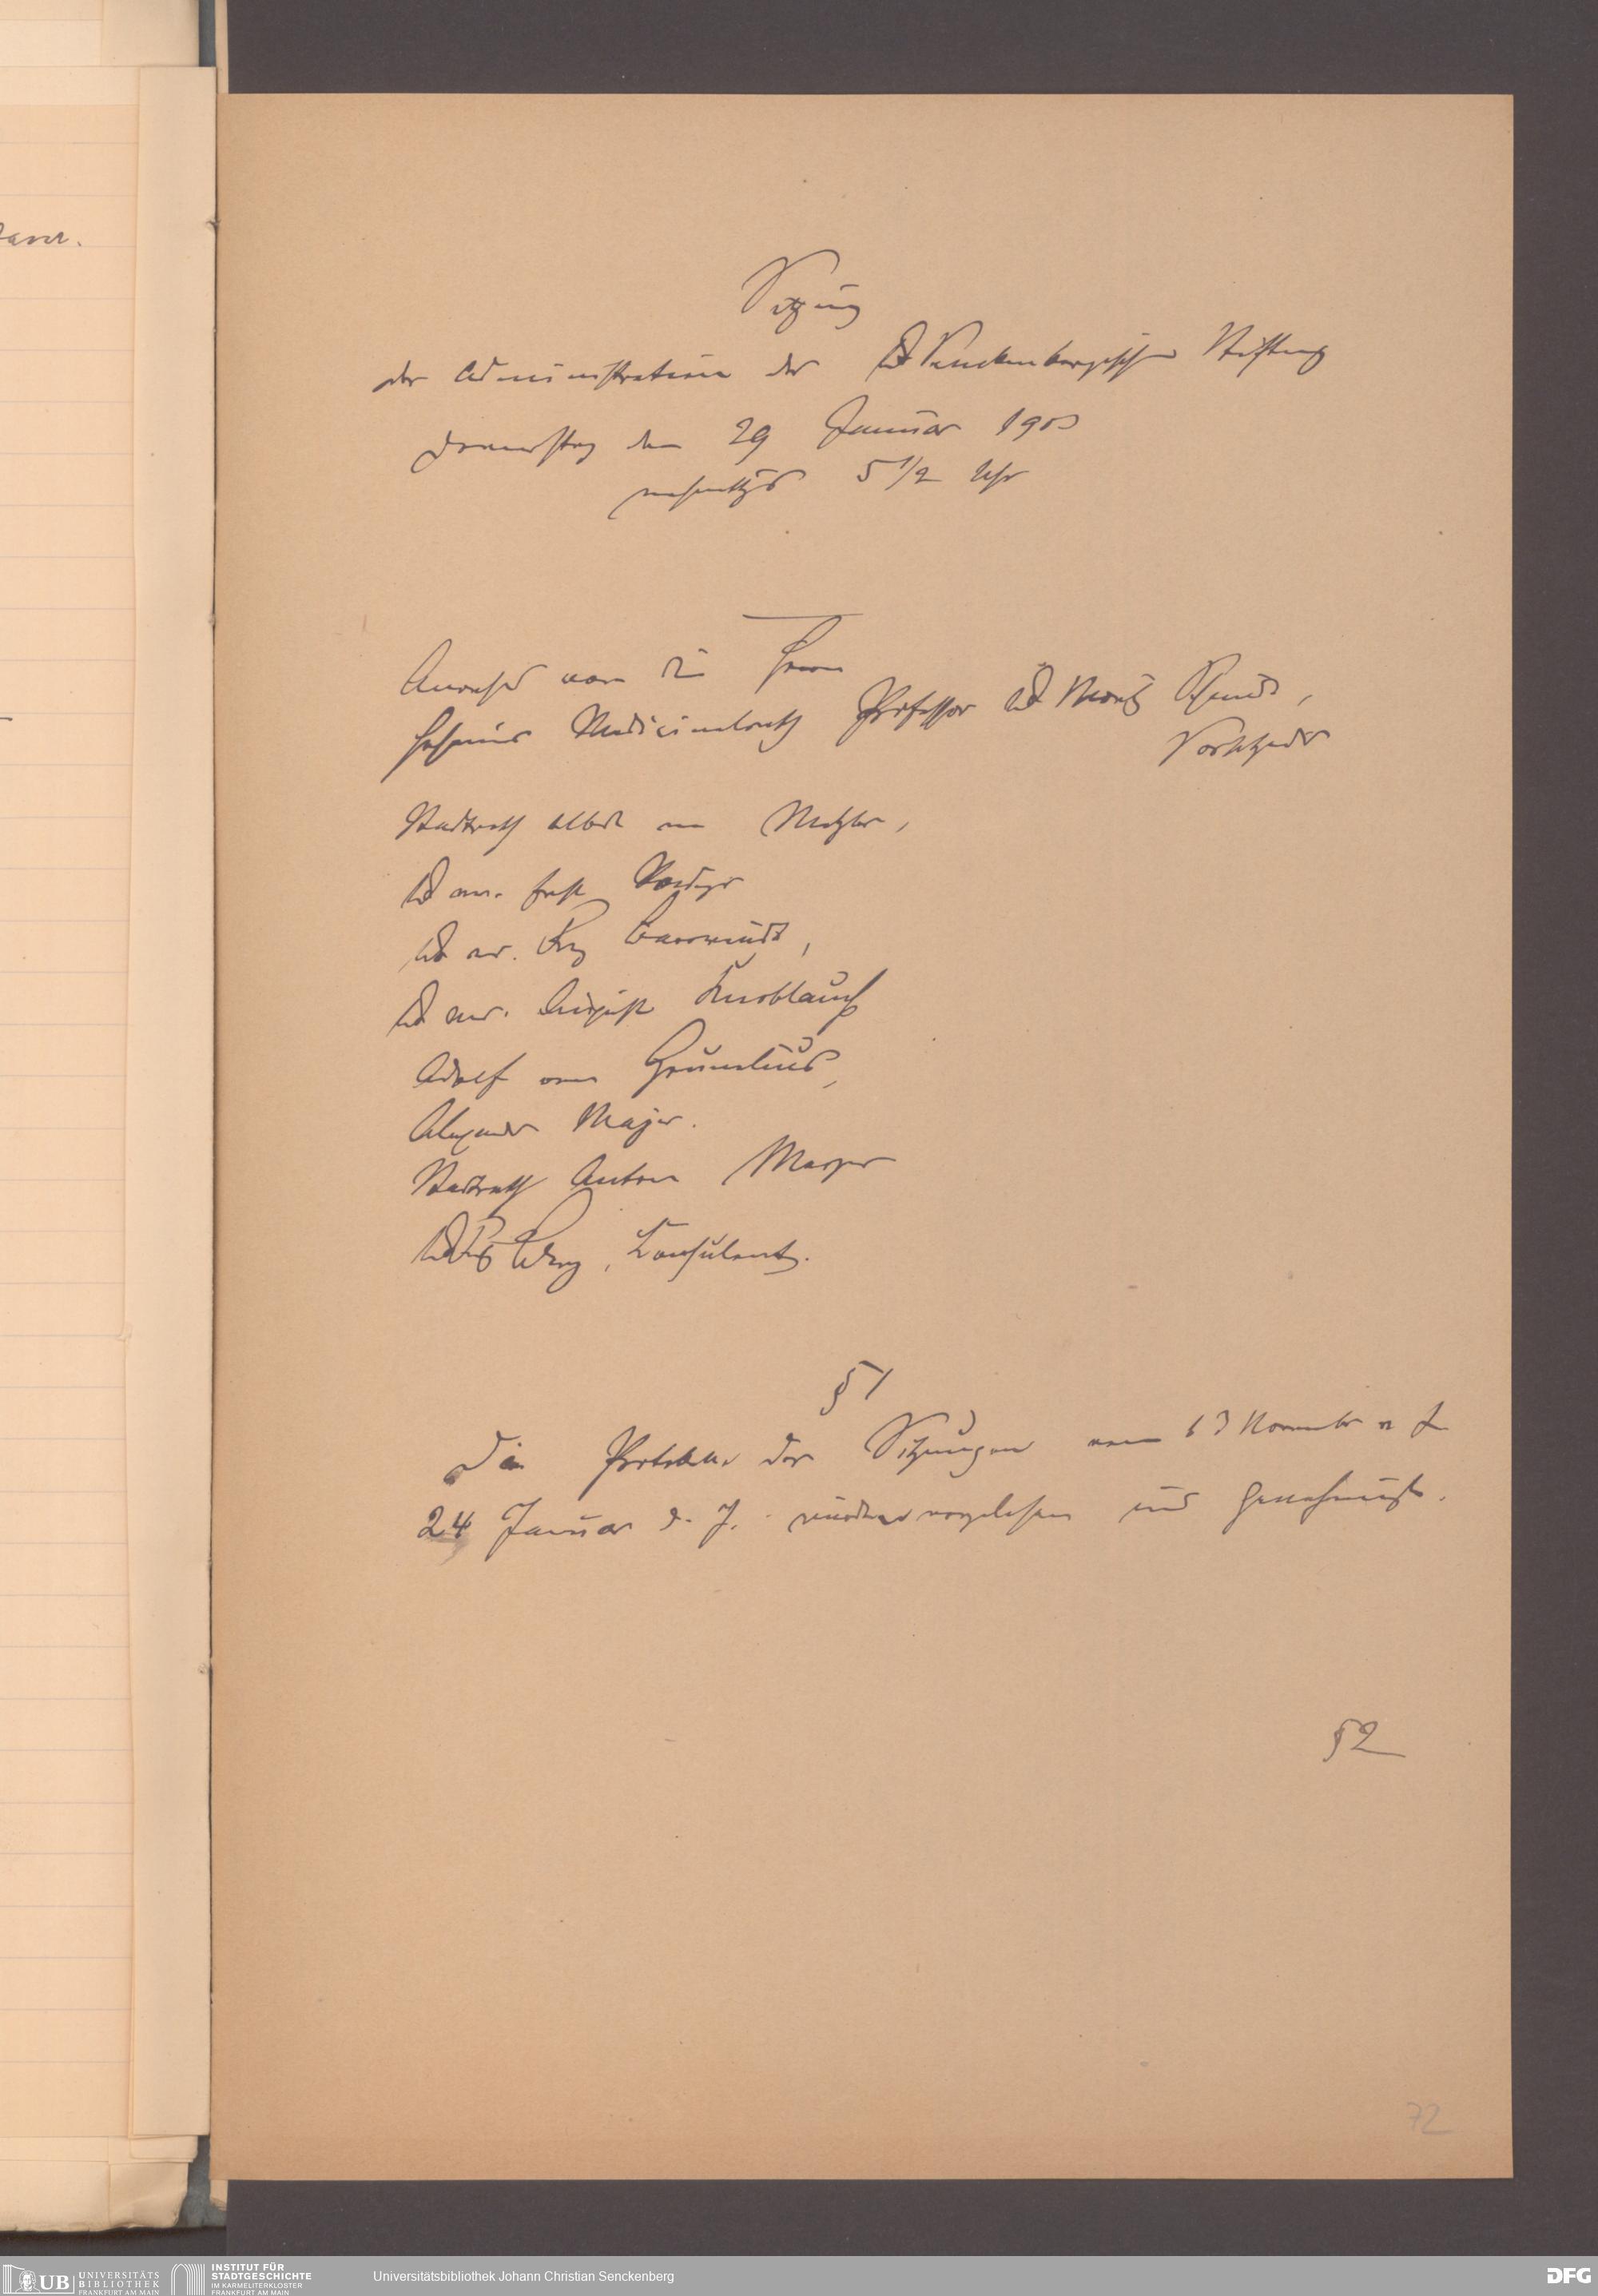 Sitzung
der Administration der Dr Senckenbergischen Stiftung
Donnerstag den 29 Januar 1903
nachmittags 5 1/2 Uhr
Anwesend waren die Herren
Geheimer Medicinalrath Professor Dr Moritz Schmidt,
Vorsitzender
Stadtrath Albert von Metzler,
Dr med. Ernst Roediger
Dr med. Franz Baerwindt,
Dr med. August Knoblauch
Adolf von Grunelius,
Alexander Majer.
Stadtrath Anton Meyer
Dr Berg, Konsulent.
§ 1
Die Protokolle der Sitzungen vom 13 November v. J.
24 Januar d. J. wurden vorgelesen und genehmigt.
§ 2
72
aver.
UB UNIVERSITÄTS
BIBLIOTHEK
FRANKFURT AM MAIN
INSTITUT FÜR
STADTGESCHICHTE
IM KARMELITERKLOSTER
FRANKFURT AM MAIN
Universitätsbibliothek Johann Christian Senckenberg
DFG